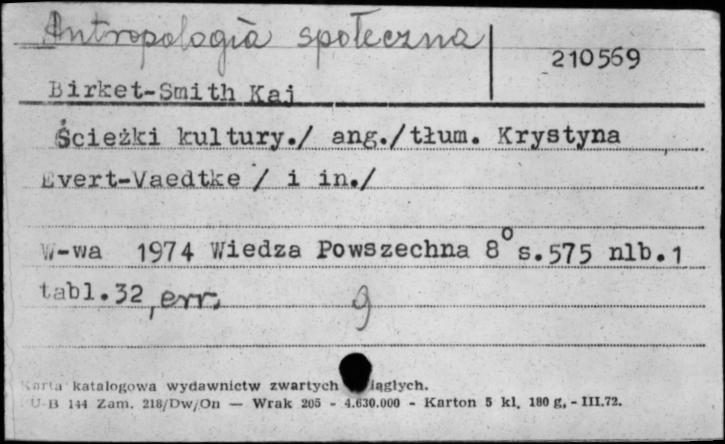 Antropologia społeczna
210569
Birket-Smith Kaj
Ścieżki kultury./ ang./tłum. Krystyna
Evert-Vaedtke / i in./
W-wa 1974 Wiedza Powszechna 8° s.575 nlb.1
tabl.32, err.
9
Karta katalogowa wydawnictw zwartych ciągłych.
U-B 144 Zam. 218/Dw/On — Wrak 205 - 4.630.000 - Karton 5 kl. 180 g. - III.72.